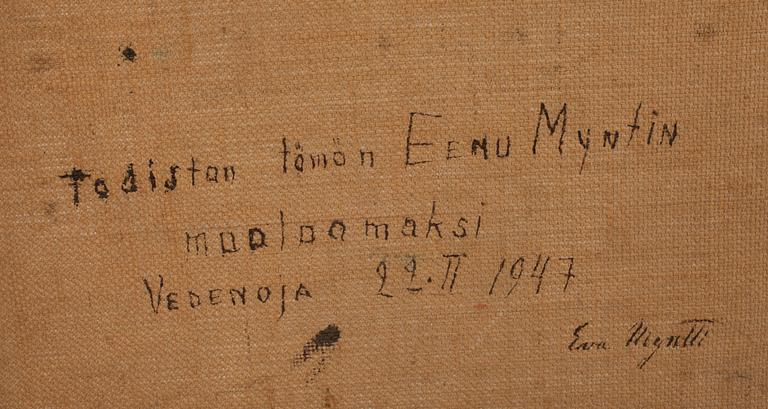 Todistan tämän EENU MYNTIN
maalaamaksi
VEDENOJA 22.II 1947
Eva Myntti